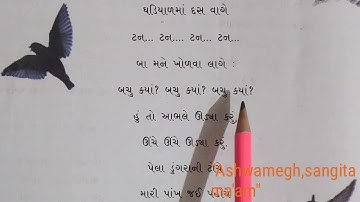 ઘડિયાળમાં દસ વાગે
ટન... ટન.... ટન... ટન...
બા મને ખોળવા લાગે :
બચુ ક્યાં? બચુ ક્યાં? બચુ ક્યાં?
હું તો આભલે ઊડ્યા કરું,
ઊંચે ઊંચે ઊડ્યા કરું.
પેલા ડુંગરાની ટોચે
મારી પાંખ જઈ પહોંચે
Ashwamegh,sangita
ma'am"